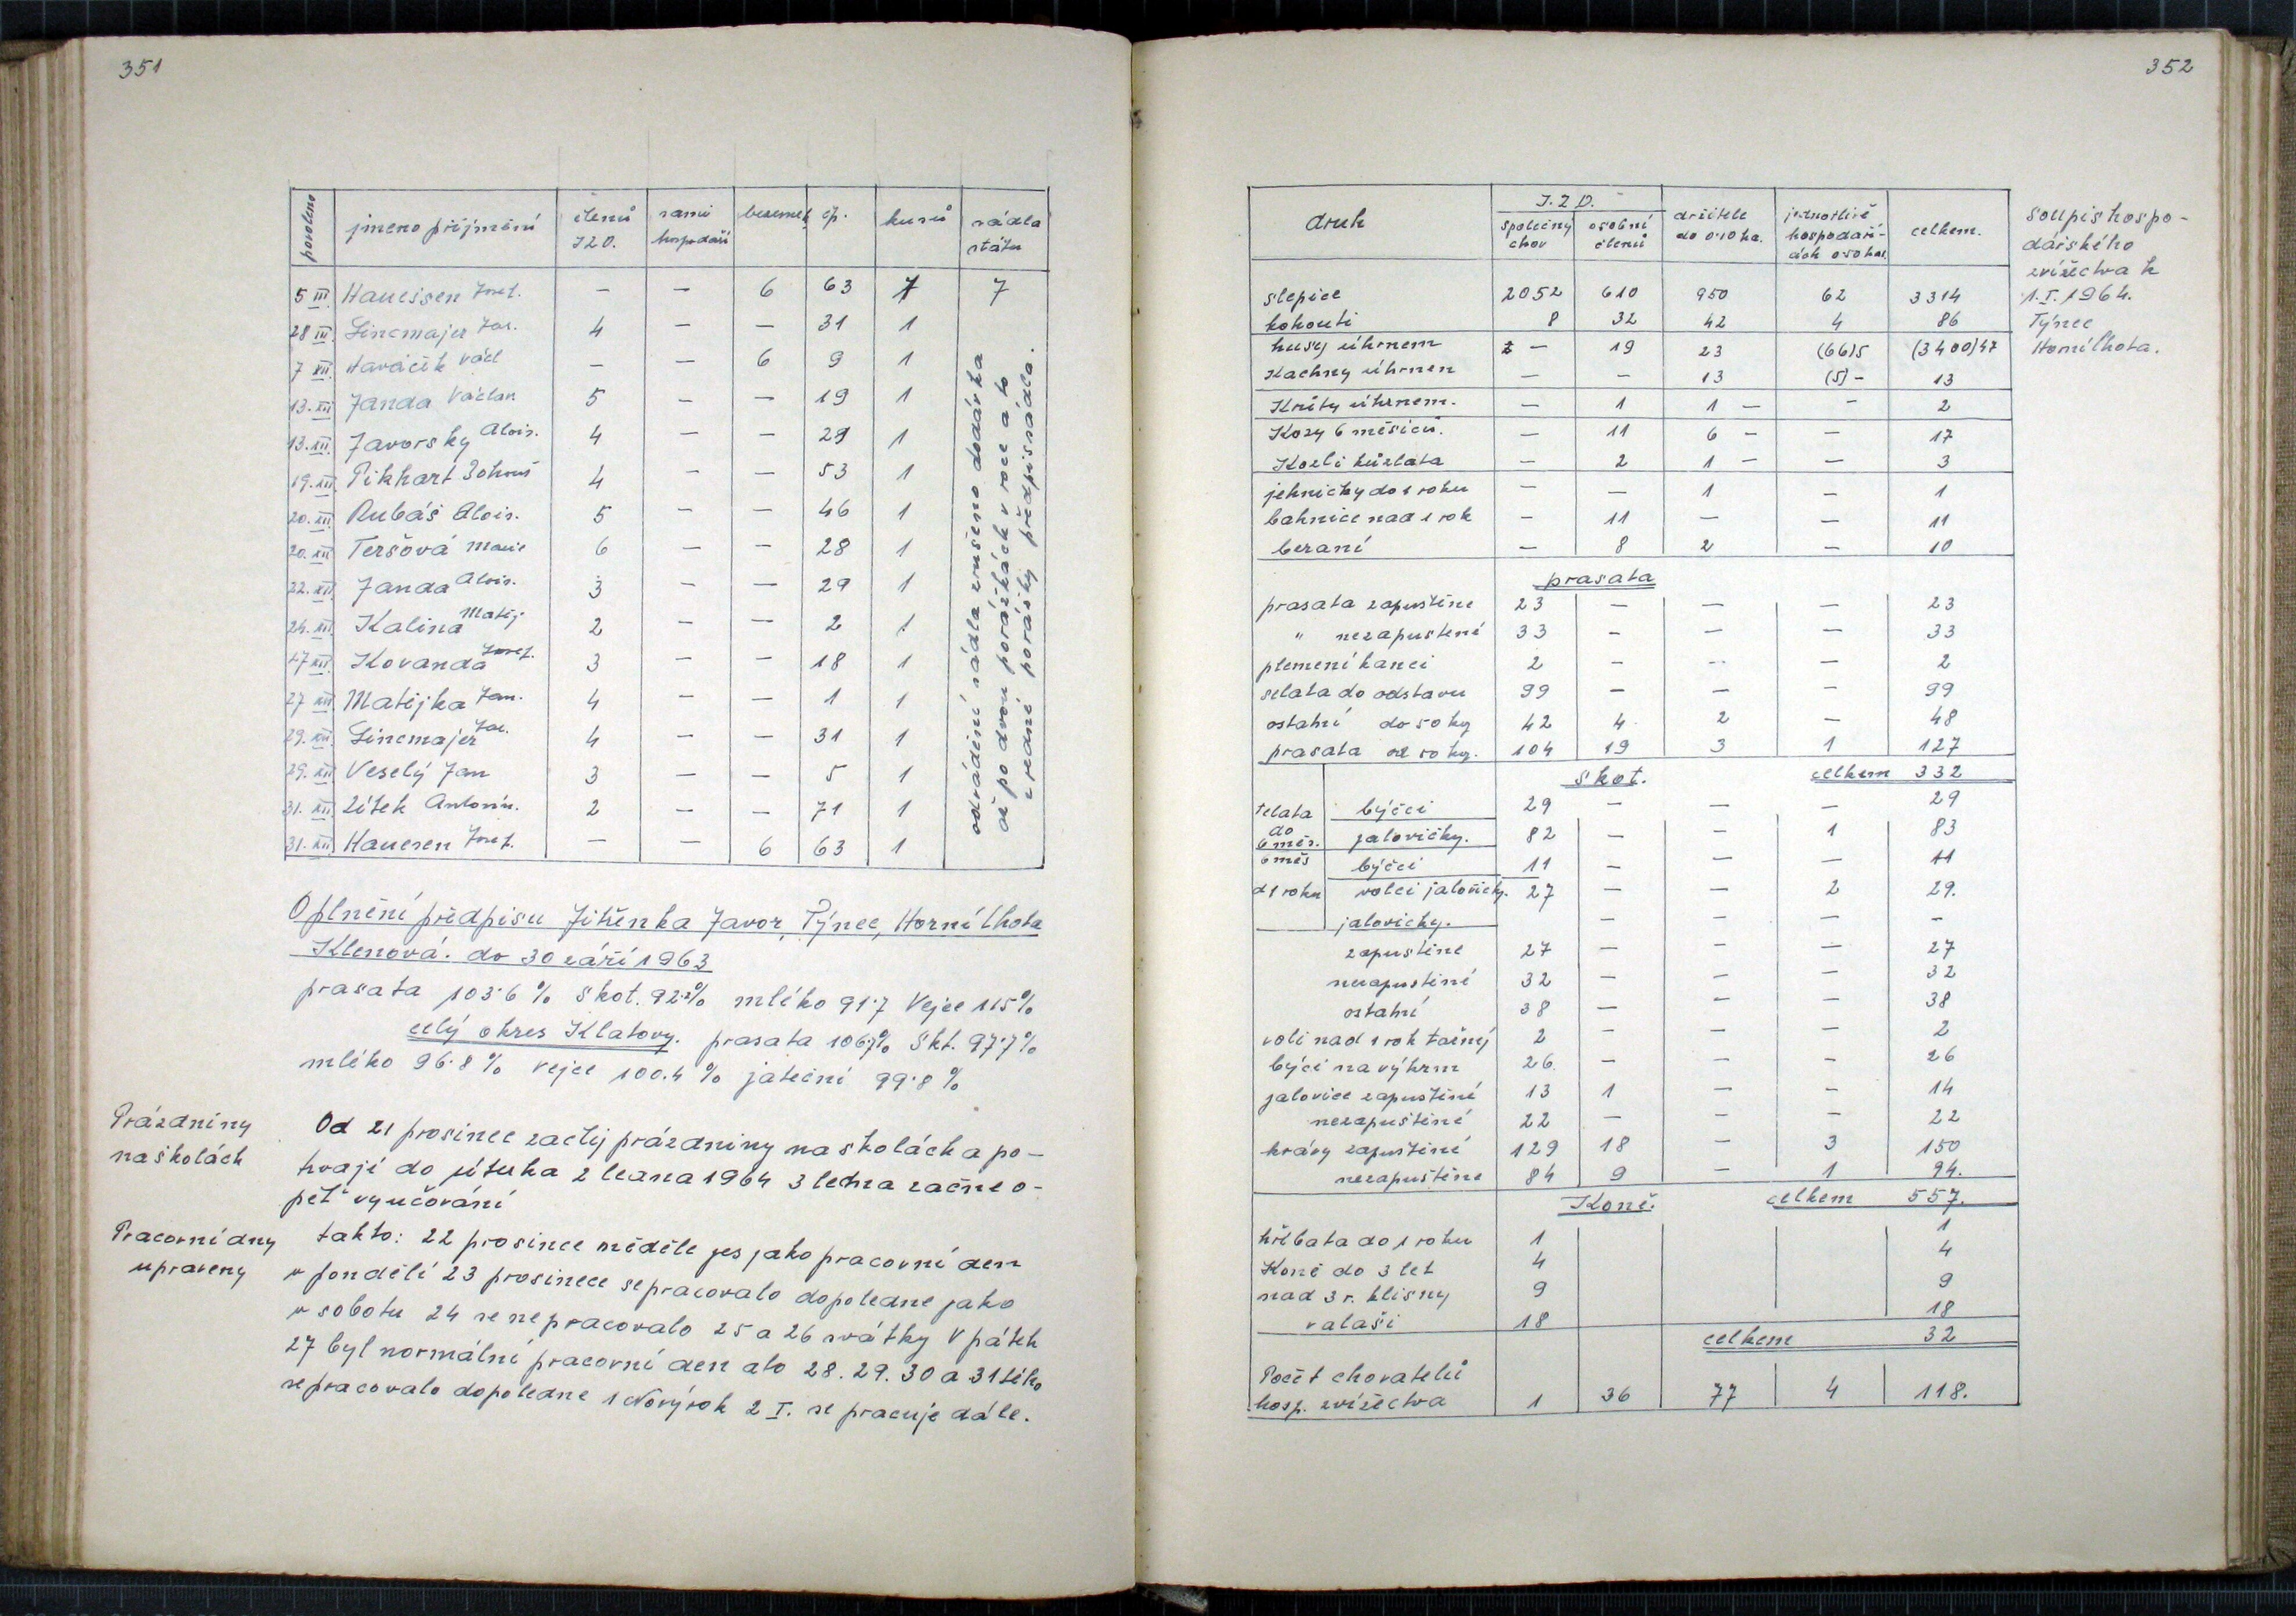 351
povoleno jmeno příjmění členů JZD. sami hospodaří bezemek čp. kusů sádla státu
5 III Haueisen Josef. — — 6 63 7 7
28 III. Lincmajer Jar. 4 — — 31 1
7 XII. Havlíček Václ — — 6 9 1
13. XII Janda Václav 5 — — 19 1
13. XII. Javorsky Alois. 4 — — 29 1
19. XII. Pikhart Bohouš 4 — — 53 1
20. XII. Rubáš Alois. 5 — — 46 1
20. XII. Teršová Marie 6 — — 28 1
22. XII Janda Alois. 3 — — 29 1
24. XII. Kalina Matěj 2 — — 2 1
27 XII. Kovanda Josef. 3 — — 18 1
27 XII Matějka Jan. 4 — — 1 1
29. XII. Lincmajer Jar. 4 — — 31 1
29. XII Veselý Jan 3 — — 5 1
31. XII Zítek Antonín. 2 — — 71 1
31. XII Hauesen Josef. — — 6 63 1
odvádění sádla zrušeno dodávka
až po dvou porážkách v roce a to
z jedné porážky předpis sádla.
O plnění předpisu Jitřenka Javor, Týnec, Horní Lhota
Klenová. do 30 září 1963
prasata 103·6 % skot. 92·2% mléko 91·7 Vejce 115%
celý okres Klatovy. prasata 106·7% Skt. 97·7%
mléko 96·8 % vejce 100.4 % jateční 99·8 %
Prázdniny
na školách
Od 21 prosince začly prázdniny na školách a po-
trvají do útuka 2 ledna 1964 3 ledna začne o-
pět vyučování
Pracovní dny
upraveny
takto: 22 prosince něděle jes jako pracovní den
v pondělí 23 prosinece se pracovalo dopoledne jako
v sobotu 24 se nepracovalo 25 a 26 svátky V pátek
27 byl normální pracovní den ato 28. 29. 30 a 31 tého
se pracovalo dopoledne 1 Nový rok 2 I. se pracuje dále.
352
druh J.Z.D. společný chov osobní členů držitelé do 0·10 ha. jednotlivě hospodaří- cích 0·50 ha. celkem.
soupis hospo-
dářského
zvířectva k
1. I. 1964.
Týnec
Horní Lhota.
slepice 2052 610 950 62 3314
kohouti 8 32 42 4 86
husy úhrnem — 19 23 (66)5 (3400)47
Kachny úhrnen — — 13 (5) - 13
Krůty úhrnem. — 1 1 — - 2
Kozy 6 měsíců. — 11 6 — — 17
Kozli kůzlata — 2 1 — — 3
jehničky do 1 roku — — 1 — 1
bahnice nad 1 rok — 11 — — 11
beraní — 8 2 — 10
prasata
prasata zapuštěne 23 — — — 23
" nezapuštené 33 — — — 33
plemení kanci 2 — — — 2
selata do odstavu 99 — — — 99
ostatní do 50 kg 42 4 2 — 48
prasata od 50 kg. 104 19 3 1 127
skot. celkem 332
telata do 6 měs. býčci 29 — — — 29
jalovičky. 82 — — 1 83
6 měs býčci 11 — — — 11
d 1 roku volci jalovičky. 27 — — 2 29.
jalovicky. — — — -
zapuštěne 27 — — — 27
nezapuštěné 32 — — — 32
ostatní 38 — — — 38
voli nad 1 rok tažný 2 — — — 2
býci na výkrm 26. — — — 26
jalovice zapuštěné 13 1 — — 14
nezapuštěné 22 — — — 22
krávy zapuštěné 129 18 — 3 150
nezapuštěne 84 9 — 1 94.
Koně. celkem 557.
hříbata do 1 roku 1 1
Koně do 3 let 4 4
nad 3 r. klisny 9 9
valaši 18 18
celkem 32
Počet chovatelů
hosp. zvířectva 1 36 77 4 118.